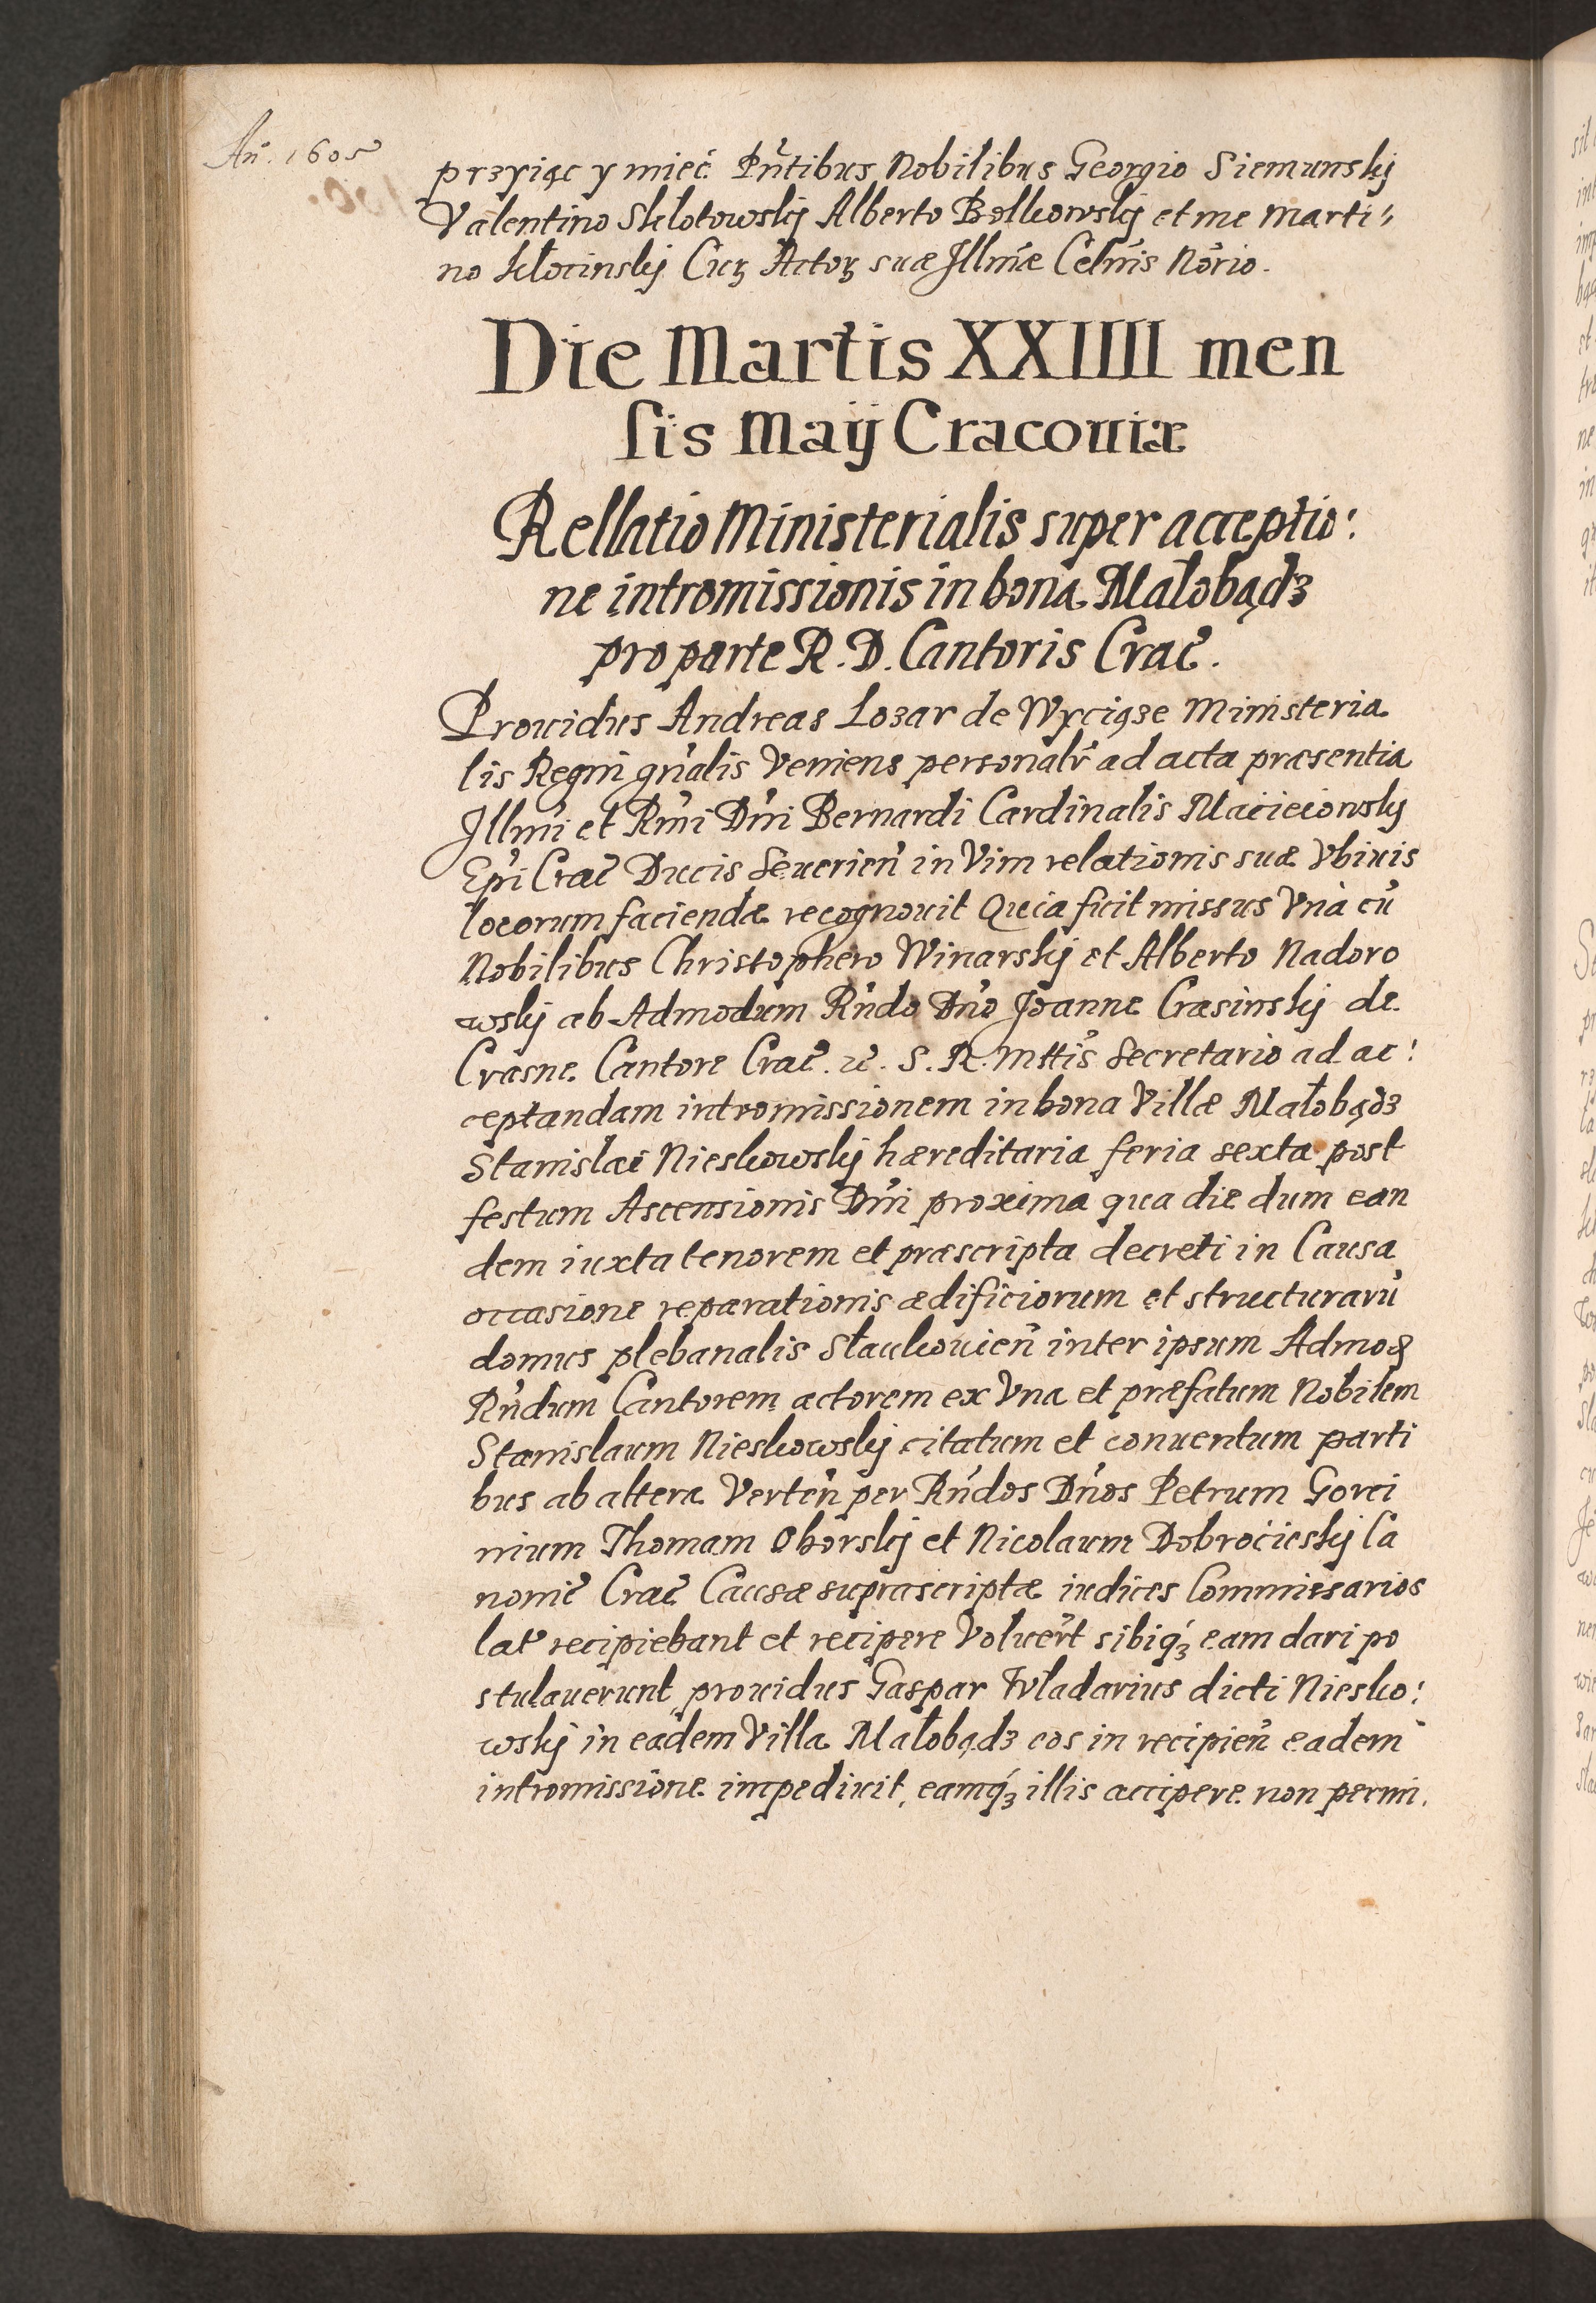 An̄. 1605
przyiąc y mieć. Pn̄tibus Nobilibus Georgio Siemunskij
Valentino Sklotowskij Alberto Bolkowskij et me Marti⸗
no Kłocinskij Cuꝫ Actoꝝ suæ Jllmæ Celnis Norio.
Die Martis XXIIII men
ſis Maij Cracouiæ
Rellatio Ministerialis super acceptio:
ne intromissionis in bona Małobądz
pro parte R. D. Cantoris Crac̄.
Prouidus Andreas Lozar de Wyciąze Ministeria
lis Regni gn̄alis Veniens personalr̄ ad acta præsentia
Jllmi et Rmi Dni Bernardi Cardinalis Macieiowskij
Epi Crac̄ Ducis Seuerien̄ in Vim relationis suæ Vbiuis
locorum faciendæ recognouit Quia fuit missus Vnà cū
Nobilibus Christophero Winarskij et Alberto Nadoro
wskij ab Admodum Rn̄do Dn̄o Joanne Crasinskij de
Crasne Cantore Crac̄. ꝛc̄. S. R. Mttis Secretario ad ac:
ceptandam intromissionem in bona Villæ Małobądz
Stanislai Nieskowskij hæreditaria feria sexta post
festum Ascensionis Dni proxima qua die dum ean
dem iuxta tenorem et præscripta decreti in Causa
occasione reparationis ædificiorum et structurarū
domus plebanalis Sławkouien̄ inter ipsum Admoꝺ
Rn̄dum Cantorem actorem ex Vna et præfatum Nobilem
Stanislaum Nieskowskij citatum et conuentum parti
bus ab altera Verten̄ per Rn̄dos Dn̄os Petrum Gorci
nium Thomam Oborskij et Nicolaum Dobrocieskij Ca
nonic̄ Crac̄ Causæ suprascriptæ iudices Commissarios
lat̄ recipiebant et recipere Voluer̄t sibiq́ꝫ eam dari po
stulauerunt prouidus Gaspar Wladarius dicti Niesko:
wskij in eadem Villa Małobądz eos in recipien̄ eadem
intromissione impediuit, eamq́ꝫ illis accipere non permi.